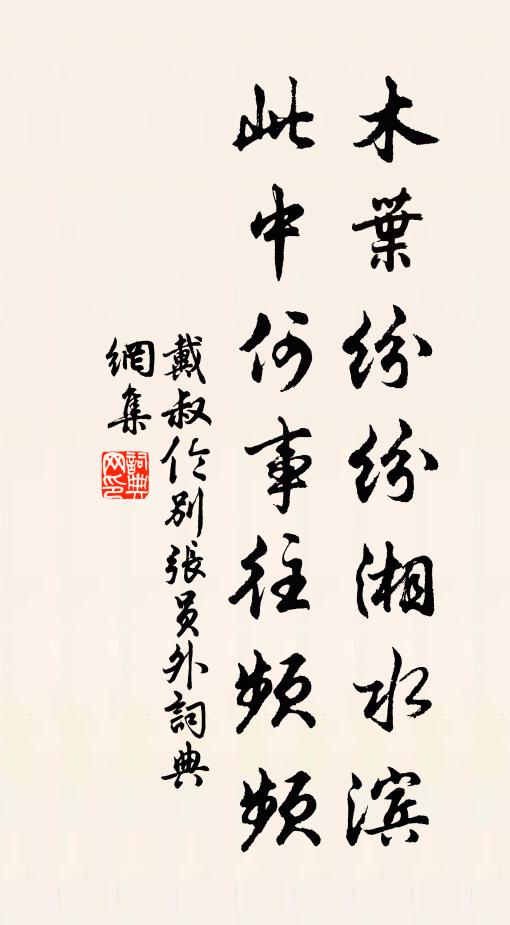 木葉紛紛湘水滨
此中何事往頻頻
戴叔伦别張员外詞典
網集
詞典網印